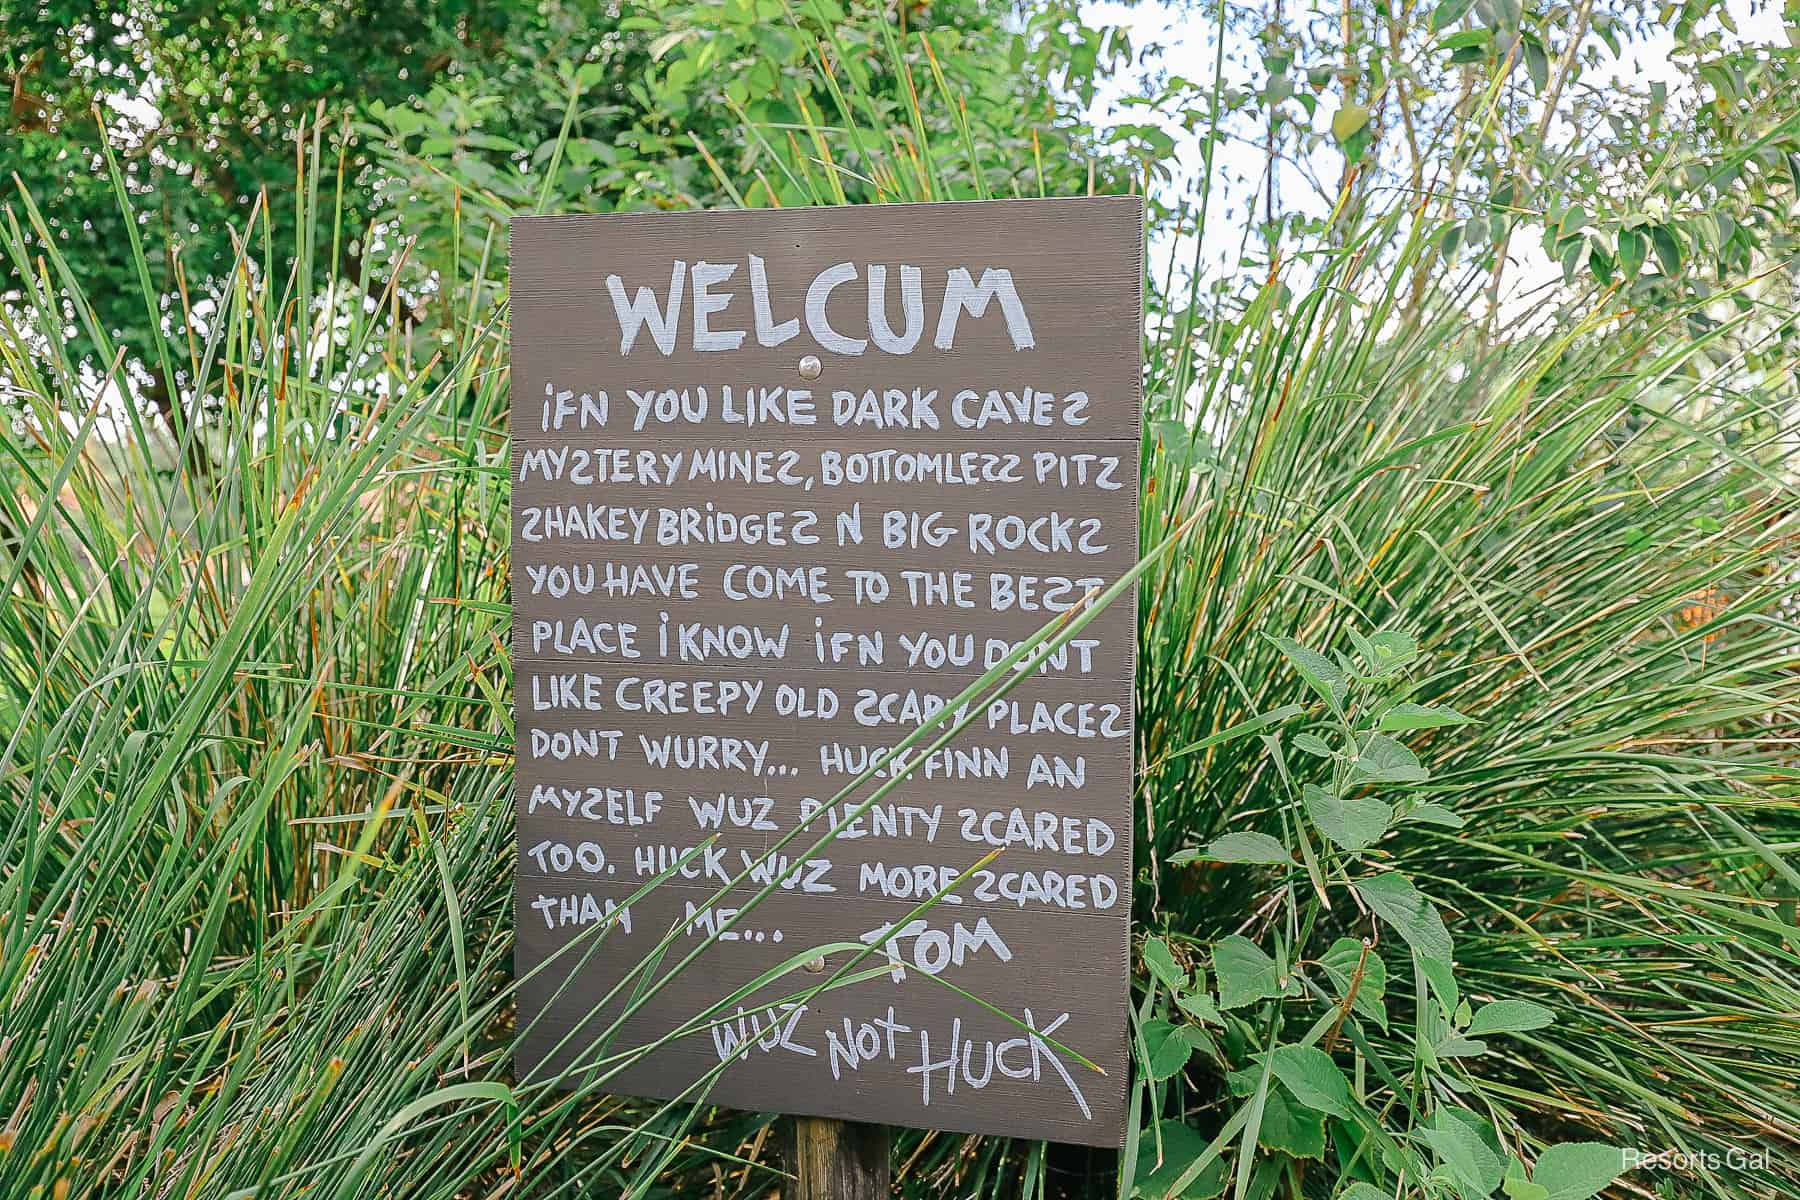 WELCUM
iFN YOU LIKE DARK CAVES
MYSTERY MINES, BOTTOMLESS PITS
SHAKEY BRiDGES N BIG ROCKS
YOU HAVE COME TO THE BEST
PLACE i KNOW iFN YOU DONT
LIKE CREEPY OLD SCARY PLACES
DONT WURRY... HUCK FINN AN
MYSELF WUZ PLENTY SCARED
TOO. HUCK WUZ MORE SCARED
THAN ME... TOM
WUZ NOT HUCK
Resorts Gal